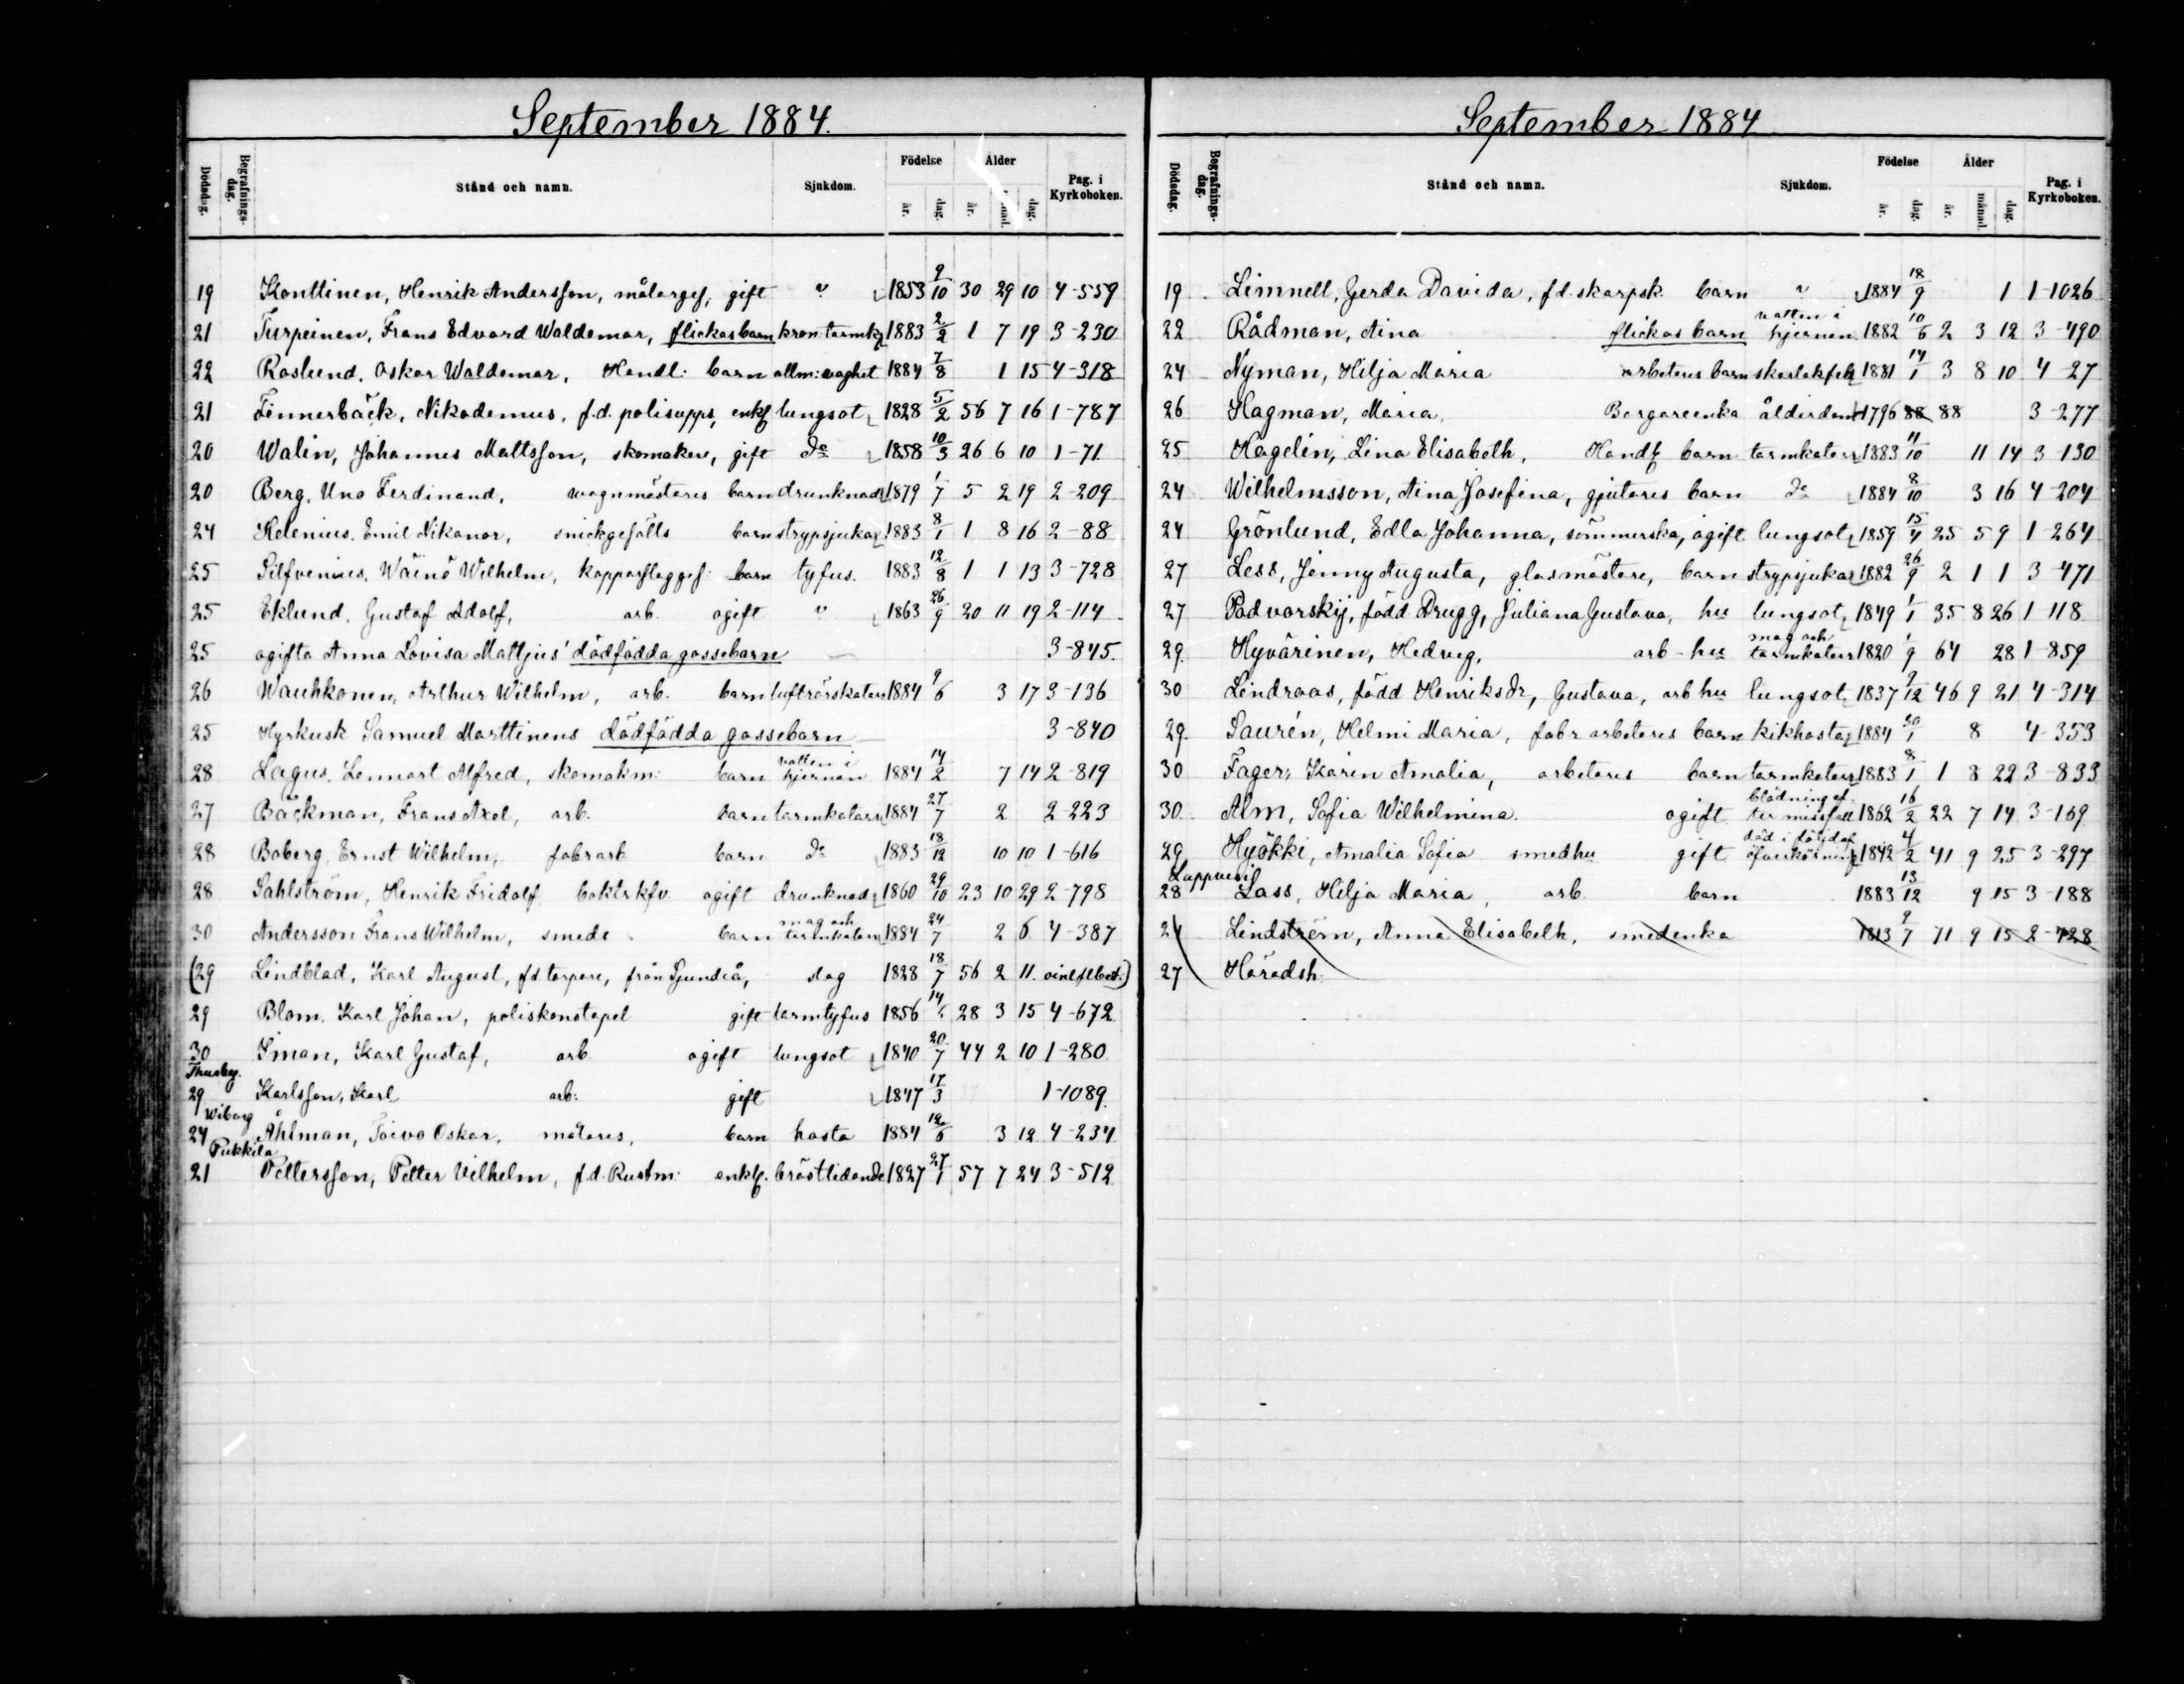 September 1884.
Dödsdag. Begrafnings-dag. Stånd och namn. Sjukdom. Födelse år. dag. Ålder år. månad. dag. Pag. i Kyrkoboken.
19 Konttinen, Henrik Andersson, målarges, gift " 1853 9/10 30 29 10 4-559
21 Turpeinen, Frans Edvard Waldemar, flickas barn kron. tarmk 1883 2/2 1 7 19 3-230
22 Roslund, Oskar Waldemar, Handl: barn allm: svaghet 1884 7/8 1 15 4-318
21 Finnerbäck, Nikodemus, f.d. polisupps, enkl lungsot 1828 5/2 56 7 16 1-787
20 Walin, Johannes Mattsson, skomakare, gift do 1858 10/3 26 6 10 1-71
20 Berg, Uno Ferdinand, vagnmästares barn drunknad 1879 1/7 5 2 19 2-209
24 Helenius, Emil Nikanor, snickgesälls barn strypsjuka 1883 8/1 1 8 16 2-88
25 Silfvenius, Wäinö Wilhelm, kopparslagges: barn tyfus. 1883 12/8 1 1 13 3-728
25 Eklund, Gustaf Adolf, arb. ogift " 1863 26/9 20 11 19 2-114
25 ogifta Anna Lovisa Mattjus' dödfödda gossebarn — 3-845.
26 Wauhkonen, Arthur Wilhelm, arb. barn luftrörskatarr 1884 9/6 3 17 3-136
25 Hyrkusk Samuel Marttinens dödfödda gossebarn — 3-840
28 Lagus, Lennart Alfred, skomakm: barn vatten i hjernan 1884 14/2 7 14 2-819
27 Bäckman, Frans Axel, arb. barn tarmkatarr 1884 27/7 2 2 223
28 Boberg, Ernst Wilhelm, fabrarb barn do 1883 18/12 10 10 1-616
28 Sahlström, Henrik Fridolf boktrkfv. ogift drunknad 1860 29/10 23 10 29 2-798
30 Andersson Frans Wilhelm, smeds barn mag och tarmkatarr 1884 24/7 2 6 4-387
(29 Lindblad, Karl August, fd torpare, från Sjundeå, slag 1828 18/7 56 2 11.
29 Blom, Karl Johan, poliskonstapel gift tarmtyfus 1856 14/6 28 3 15 4-672
30 Iman, Karl Gustaf, arb. ogift lungsot 1840 20/7 44 2 10 1-280
Thusby.
29 Karlsson, Karl arb: gift 1847 17/3 1-1089.
Wiborg
24 Åhlman, Toivo Oskar, målares, barn hosta 1884 12/6 3 12 4-234
Pukkila
21 Pettersson, Petter Vilhelm, f.d. Rustm: enkl. bröstlidande 1827 27/1 57 7 24 3-512
September 1884
Dödsdag. Begrafnings-dag. Stånd och namn. Sjukdom. Födelse år. dag. Ålder år. månad. dag. Pag. i Kyrkoboken.
19 Limnell, Gerda Davida, f.d. skarpsk. barn " 1884 18/9 1 1-1026
22 Rådman, Aina flickas barn vatten i hjernan 1882 10/6 2 3 12 3-490
24 Nyman, Hilja Maria arbetares barn skarlakfeb 1881 14/1 3 8 10 4-27
26 Hagman, Maria, Borgareenka ålderdom 1796 88 88 3-277
25 Hagelin, Lina Elisabeth, Handl barn tarmkatarr 1883 11/10 11 14 3-130
24 Wilhelmsson, Aina Josefina, gjutares barn do 1884 8/10 3 16 4-204
24 Grönlund, Edla Johanna, sömmerska, ogift lungsot 1859 15/4 25 5 9 1-264
27 Less, Jenny Augusta, glasmästare, barn strypsjuka 1882 26/9 2 1 1 3-471
27 Padvorskij, född Drugg, Juliana Gustava, hu lungsot 1849 1/1 35 8 26 1 118
29. Hyvärinen, Hedvig, arb-hu mag och tarmkatarr 1820 1/9 64 28 1-859
30 Lindroos, född Henriksdr, Gustava, arb hu lungsot 1837 9/12 46 9 21 4-314
29. Saurén, Helmi Maria, fabr arbetares barn kikhosta 1884 30/1 8 4-353
30 Fager, Karin Amalia, arbetares barn tarmkatarr 1883 8/1 1 8 22 3-833
30 Alm, Sofia Wilhelmina ogift blödning efter missfall 1862 16/2 22 7 14 3-169
29 Hyökki, Amalia Sofia smedhu gift död i följd af öfverkörning 1842 4/2 41 9 25 3-297
Lappvesi
28 Lass, Hilja Maria, arb. barn 1883 13/12 9 15 3-188
24 Lindström, Anna Elisabeth, smedenka 1813 9/7 71 9 15 2-728
27 Häradsh.